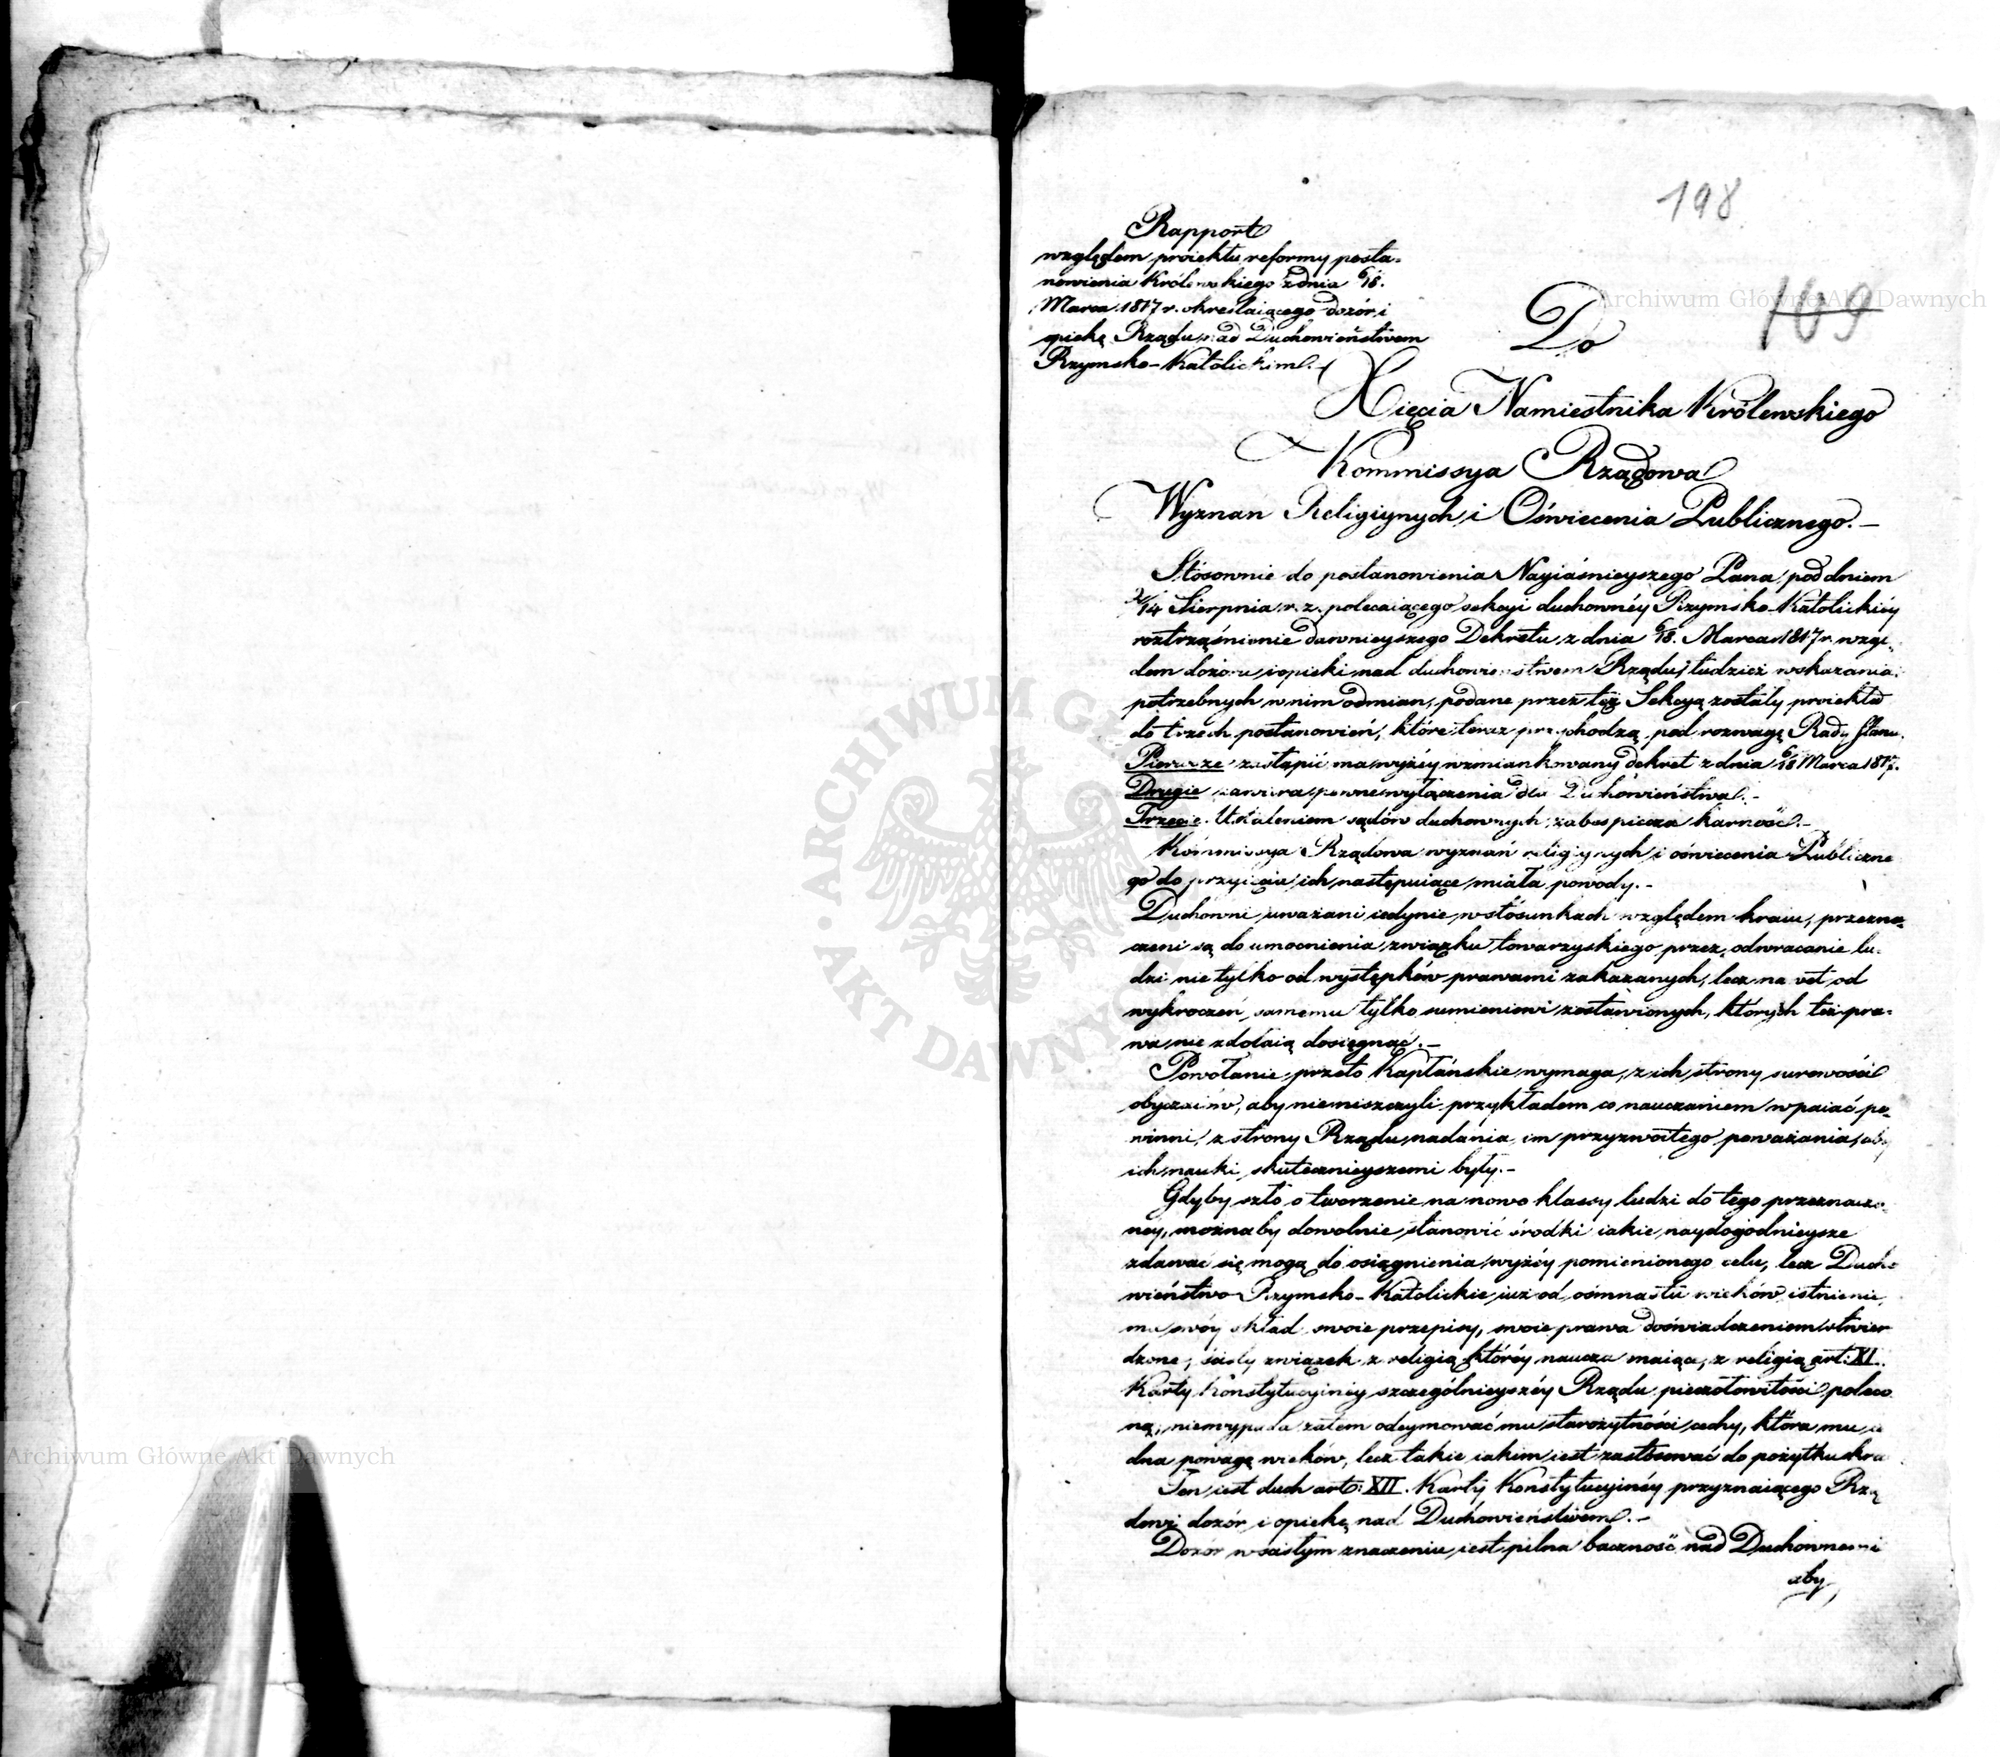 198
169
Rapport
względem proiektu reformy posta=
nowienia Królewskiego z dnia 6/18.
Marca 1817 r. określaiącego dozór i
opiekę Rządu nad Duchowieństwem
Rzymsko-Katolickim.-
Do
Xięcia Namiestnika Królewskiego
Kommissya Rządowa
Wyznań Religiynych i Oświecenia Publicznego.-
Stósownie do postanowienia Nayiaśnieyszego Pana pod dniem
2/14 Sierpnia r. z. polecaiącego sekcyi duchownéy Rzymsko-Katolickiéy
roztrząśnienie dawnieyszego Dekretu z dnia 6/18. Marca 1817 r. wzglę,
dem dozoru i opieki nad duchowieństwem Rządu, tudzież wskazania
potrzebnych w nim odmian, podane przez też Sekcyą zostały proiekta
do trzech postanowień, które teraz przychodzą pod rozwagę Rady Stanu.
Pierwsze zastąpić ma wyżéy wzmiankowany dekret z dnia 6/18 Marca 1817.
Drugie zawiera pewne wyłączenia dla Duchowieństwa.-
Trzecie. Ustaleniem sądów duchownych, zabespiecza karność.-
Kommissya Rządowa wyznań religiynych i oświecenia Publiczne
go do przyięcia ich następuiące miała powody.-
Duchowni uważani iedynie w stósunkach względem kraiu, przezna=
czeni są do umocnienia związku towarzyskiego przez odwracanie lu=
dzi nie tylko od występków prawami zakazanych, lecz na wet od
wykroczeń samemu tylko sumieniowi zostawionych, których też pra=
wa nie zdołaią dosięgnąć.-
Powołanie przeto Kapłańskie wymaga, z ich strony surowości
obyczaiów, aby nie niszczyli przykładem co nauczaniem wpaiać po=
winni, z strony Rządu nadania im przyzwoitego poważania, aby
ich nauki skutecznieyszemi były.-
Gdyby szło o tworzenie na nowo klassy ludzi do tego przeznaczo=
néy, możnaby dowolnie stanowić środki iakie naydogodnieysze
zdawać się mogą do osiągnienia wyżéy pomienionego celu, lecz Ducho
wieństwo Rzymsko-Katolickie iuż od ośmnastu wieków istnienie,
ma swóy skład swoie przepisy, swoie prawa doświadczeniem stwier
dzone, ścisły związek z religią któréy naucza maiące, z religią art: XI.
Karty Konstytucyinéy szczególnieyszéy Rządu pieczołowitości poleco
ną, niewypada zatem odeymować mu starożytności cechy, która mu ie
dna powagę wieków, lecz takie iakim iest zastósować do pożytku kra
Ten iest duch art: XII. Karty Konstytucyinéy przyznaiącego Rzą
dowi dozór i opiekę nad Duchowieństwem.-
Dozór w ścisłym znaczeniu iest pilna baczność nad Duchownemi
aby